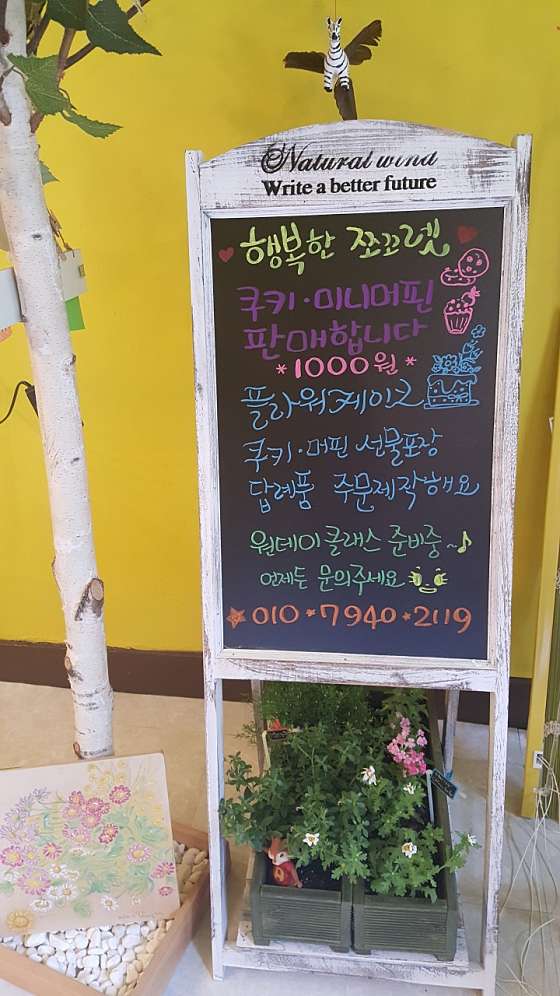 Natural wind
Write a better future
행복한 쪼꼬렛
쿠키·미니머핀
판매합니다
*1000원*
플라워케이크
쿠키·머핀 선물포장
답례품 주문제작해요
원데이 클래스 준비중~♪
언제든 문의주세요
010*7940*2119